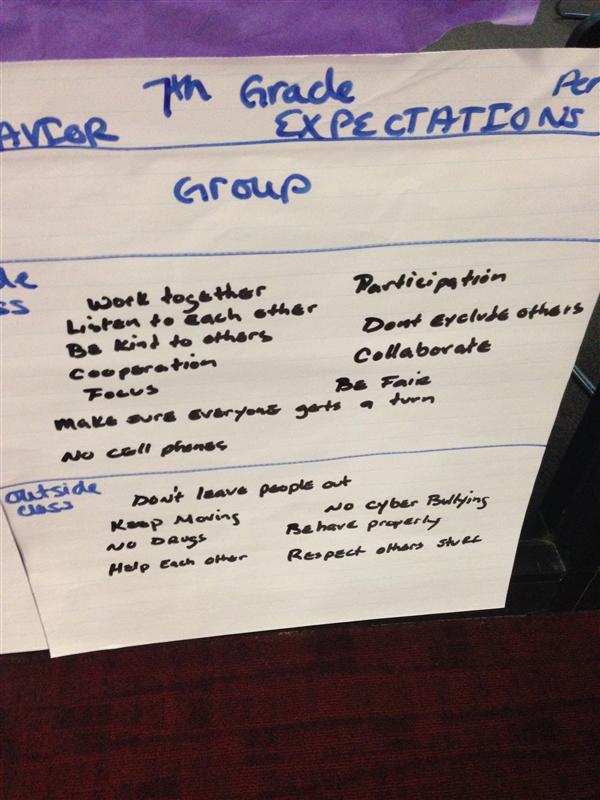 7th Grade Per
AVIOR EXPECTATIONS
Group
de
ss
Work together Participation
Listen to Each other
Be Kind to others Dont exclude others
Cooperation Collaborate
Focus Be Fair
Make sure everyone gets a turn
No cell phones
outside
class
Don't leave people out
Keep Moving No cyber Bullying
No Drugs Behave properly
Help Each other Respect others stuff